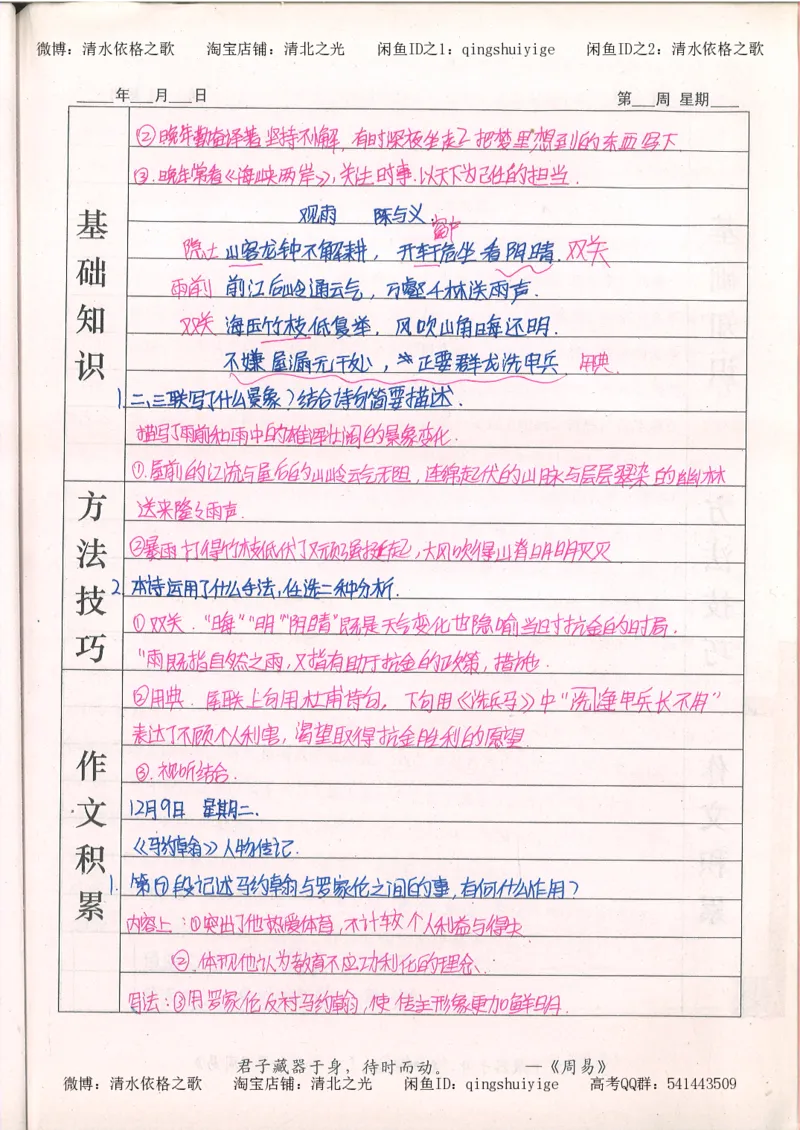 微博：清水依格之歌 淘宝店铺：清北之光 闲鱼ID之1：qingshuiyige 闲鱼ID之2：清水依格之歌
年 月 日 第 周 星期
基础知识
②晚年勤奋译著坚持不懈，有时深夜坐起把梦里想到的东西写下
③.晚年常看《海峡两岸》,关注时事.以天下为己任的担当.
观雨 陈与义.
窗户
隐士 山客龙钟不解耕，开轩危坐看阴晴. 双关
雨前 前江后岭通云气，万壑千林送雨声.
双关 海压竹枝低复举，风吹山角晦还明.
不嫌屋漏无干处，正要群龙洗甲兵. 用典.
1.二、三联写了什么景象？结合诗句简要描述.
描写了雨前和雨中的雄浑壮阔的景象变化.
①.屋前的江流与屋后的山岭云气无阻，连绵起伏的山脉与层层翠杂的幽林
方法技巧
送来隆隆雨声.
②暴雨打得竹枝低伏了又顽强挺起，大风吹得山脊明明灭灭
2.本诗运用了什么手法,任选二种分析.
①双关."晦""明""阴晴"既是天气变化也隐喻当时抗金的时局.
"雨既指自然之雨,又指有助于抗金的政策，措施.
作文积累
②用典.尾联上句用杜甫诗句，下句用《洗兵马》中"洗净甲兵长不用"
表达了不顾个人利害，渴望取得抗金胜利的愿望.
③.视听结合.
12月9日 星期二.
《马约翰》人物传记.
1.第⑦段记述马约翰与罗家伦之间的事,有何什么作用？
内容上：①突出了他热爱体育,不计较个人利益与得失
②.体现他认为教育不应功利化的理念.
写法：③用罗家伦反衬马约翰,使传主形象更加鲜明.
君子藏器于身，待时而动。 —《周易》
微博：清水依格之歌 淘宝店铺：清北之光 闲鱼ID：qingshuiyige 高考QQ群：541443509